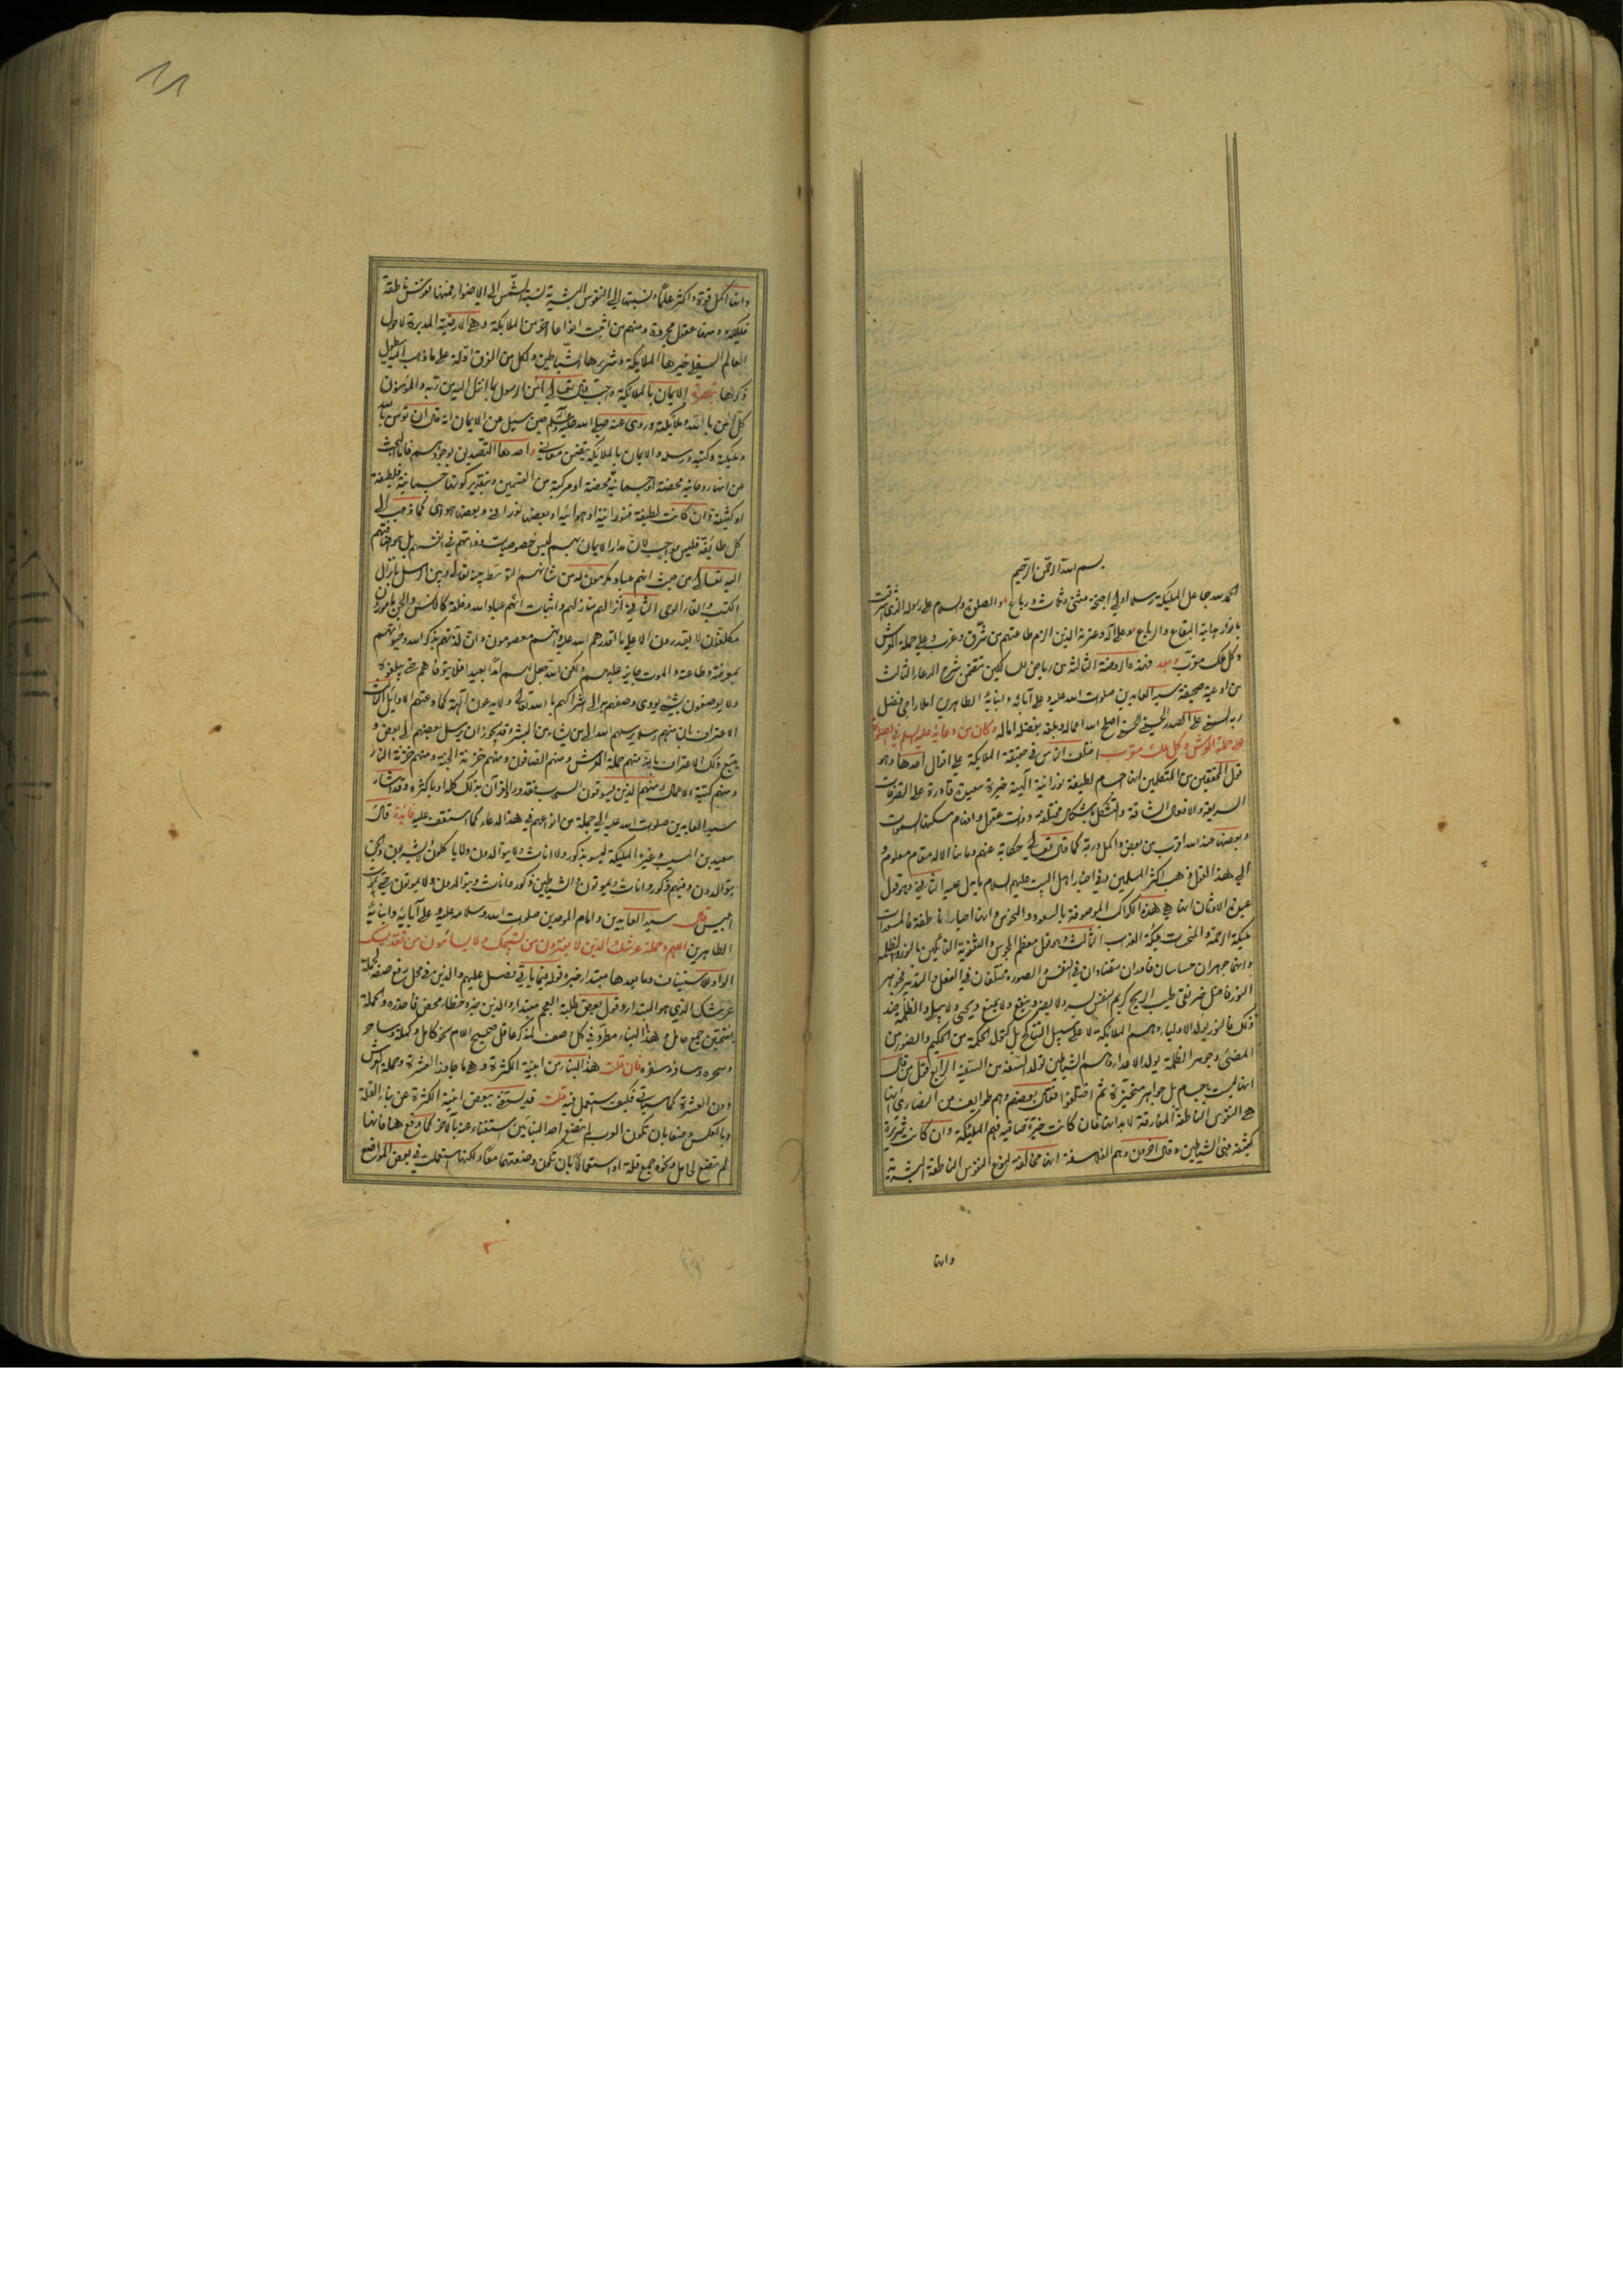 بسم الله الرحمن الرحيم
الحمد لله جاعل المليكة رسلا اولي اجنحة مثنى وثلاث ورباع والصلوة والسلام على رسوله الذي اشرقت
بانوار هدايته البقاع والرباع وعلى آله وعترته الذين الزم طاعتهم من شرق وغرب وعلى حملة العرش
وكل ملك مقرب وبعد فهذه الروضة الثالثة من رياض السالكين تتضمن شرح الدعاء الثالث
من ادعية صحيفة سيد العابدين صلوات الله عليه وعلى آبائه وابنائه الطاهرين املاء راجي فضل
ربه السني علي الصدر الحسيني الحسني اصلح الله اعماله وبلغه بفضله اماله وكان من دعائه عليه السلم في الصلوة
على حملة العرش وكل ملك مقرب اختلف الناس في حقيقة الملايكة على اقوال احدها وهو
قول المحققين من المتكلمين انها اجسام لطيفة نورانية آلهية خيرة سعيدة قادرة على التصرفات
السريعة والافعال الشاقة والتشكل باشكال مختلفة وذوات عقول وافهام مسكنها السموات
وبعضها عند الله اقرب من بعض واكمل درجة كما قال تعالى حكاية عنهم وما منا الا له مقام معلوم و
الى هذا القول ذهب اكثر المسلمين وفي اخبار اهل البيت عليهم السلام ما يدل عليه الثاني وهو قول
عبدة الاوثان انها هي هذه الكواكب الموصوفة بالسعود والنحوس وانها احياء ناطقة فالمسعدات
مليكة الرحمة والمنحسات مليكة العذاب الثالث وهو قول معظم المجوس والثنوية القائلين بالنور والظلمة
وانهما جوهران حساسان قادران متضادان في النفس والصورة مختلفان في الفعل والتدبير فجوهر
النور فاضل خير نقي طيب الريح كريم النفس يسر ولا يضر وينفع ولا يمنع ويحيى ولا يبلى والظلمة ضد
ذلك فالنور يولد الاولياء وهم الملائكة لا على سبيل التناكح بل كتولد الحكمة من الحكيم والضوء من
المضئ وجوهر الظلمة يولد الاعداء وهم الشياطين تولد السفه من السفيه الرابع قول من قال
انها ليست باجسام بل جواهر متحيزة ثم اختلفوا فقال بعضهم وهم طوايف من النصارى انها
هي النفوس الناطقة المفارقة لابدانها فان كانت خيرة صافية فهم المليكة وان كانت شريرة
كثيفة فهي الشياطين وقال اخرون وهم الفلاسفة انها مخالفة لنوع النفوس الناطقة البشرية
وانها
وانها اكمل قوة واكثر علما ونسبتها الى النفوس البشرية نسبة الشمس الى الاضواء فمنها نفوس ناطقة
فلكية ومنها عقول مجردة ومنهم من اثبت انواعا اخر من الملايكة وهي الارضية المدبرة لاحوال
العالم السفلي خيرها الملايكة وشريرها الشياطين ولكل من الفرق ادلة على ما ذهب اليه يطول
ذكرها تبصرة الايمان بالملائكة واجب قال تعالى آمن الرسول بما انزل اليه من ربه والمؤمنون
كل آمن بالله وملائكته وروى عنه صلى الله عليه وآله وسلم حين سئل عن الايمان انه قال ان تؤمن بالله
وملئكته وكتبه ورسله والايمان بالملايكة يتضمن معاني احدها التصديق بوجودهم فاما البحث
عن انها روحانية محضة او جسمانية محضة او مركبة من القسمين وبتقدير كونها جسمانية فلطيفة
او كثيفة فان كانت لطيفة فنورانية او هوائية او بعضها نوراني وبعضها هوائي كما ذهب الى
كل طائفة فليس بواجب لان مدار الايمان بهم ليس خصوصيات ذواتهم في انفسهم بل هو اضافتهم
اليه تعالى من حيث انهم عباد مكرمون له من شانهم التوسط بينه تعالى وبين الرسل بانزال
الكتب والقاء الوحى الثاني انزالهم منازلهم واثبات انهم عباد الله وخلقه كالانس والجن مامورون
مكلفون لا يقدرون الا على ما اقدرهم الله عليه وانهم معصومون وان لذتهم بذكر الله وحيوتهم
بمعرفته وطاعته والموت جايز عليهم ولكن الله جعل لهم امدا بعيدا فلا يتوفاهم حتى يبلغوه
ولا يوصفون بشيء يؤدي وصفهم به الى اشراكهم بالله تعالى ولا يدعون آلهة كما دعتهم الاوائل الثالث
الاعتراف بان منهم رسلا يرسلهم الله الى من يشاء من البشر وقد يجوز ان يرسل بعضهم الى بعض و
يتبع ذلك الاعتراف بان منهم حملة العرش ومنهم الصافون ومنهم خزنة الجنة ومنهم خزنة النار
ومنهم كتبة الاعمال ومنهم الذين يسوقون السحاب فقد ورد القرآن بذلك كله او باكثره وقد اشار
سيد العابدين صلوات الله عليه الى جملة من انواعهم في هذا الدعاء كما ستقف عليه فائدة قال
سعيد بن المسيب وغيره المليكة ليسوا بذكور ولا اناث ولا يتوالدون ولا ياكلون ولا يشربون والجن
يتوالدون وفيهم ذكور واناث ويموتون والشياطين ذكور واناث ويتوالدون ولا يموتون حتى يموت
ابليس قال سيد العابدين وامام الموحدين صلوات الله وسلامه عليه وعلى آبائه وابنائه
الطاهرين اللهم وحملة عرشك الذين لا يفترون من تسبيحك ولا يسأمون من تقديسك
الواو للاستيناف وما بعدها مبتدأ خبره قوله فيما ياتي فصل عليهم والذين في محل رفع صفة لحملة
عرشك الذي هو المبتدأ وقول بعض طلبة العجم مبتدأ والذين خبره خطأ محض فاحذره والحملة
بفتحتين جمع حامل وهذا البناء مطرد في كل وصف لمذكر عاقل صحيح اللام نحو كامل وكملة وساحر
وسحرة وسافر وسفرة فان قلت هذا البناء من ابنية الكثرة وهو ما جاوز العشرة وحملة العرش
دون العشرة كما سياتي فكيف استعمل فيه قلت قد يستغنى ببعض ابنية الكثرة عن بناء القلة
وبالعكس وضعا بان تكون العرب لم تضع احد البنائين استغناء عنه بالآخر كما وقع هنا فانها
لم تضع لحامل ونحوه جمع قلة او استعمالا بان تكون وضعتهما معا ولكنها استعملت في بعض المواضع